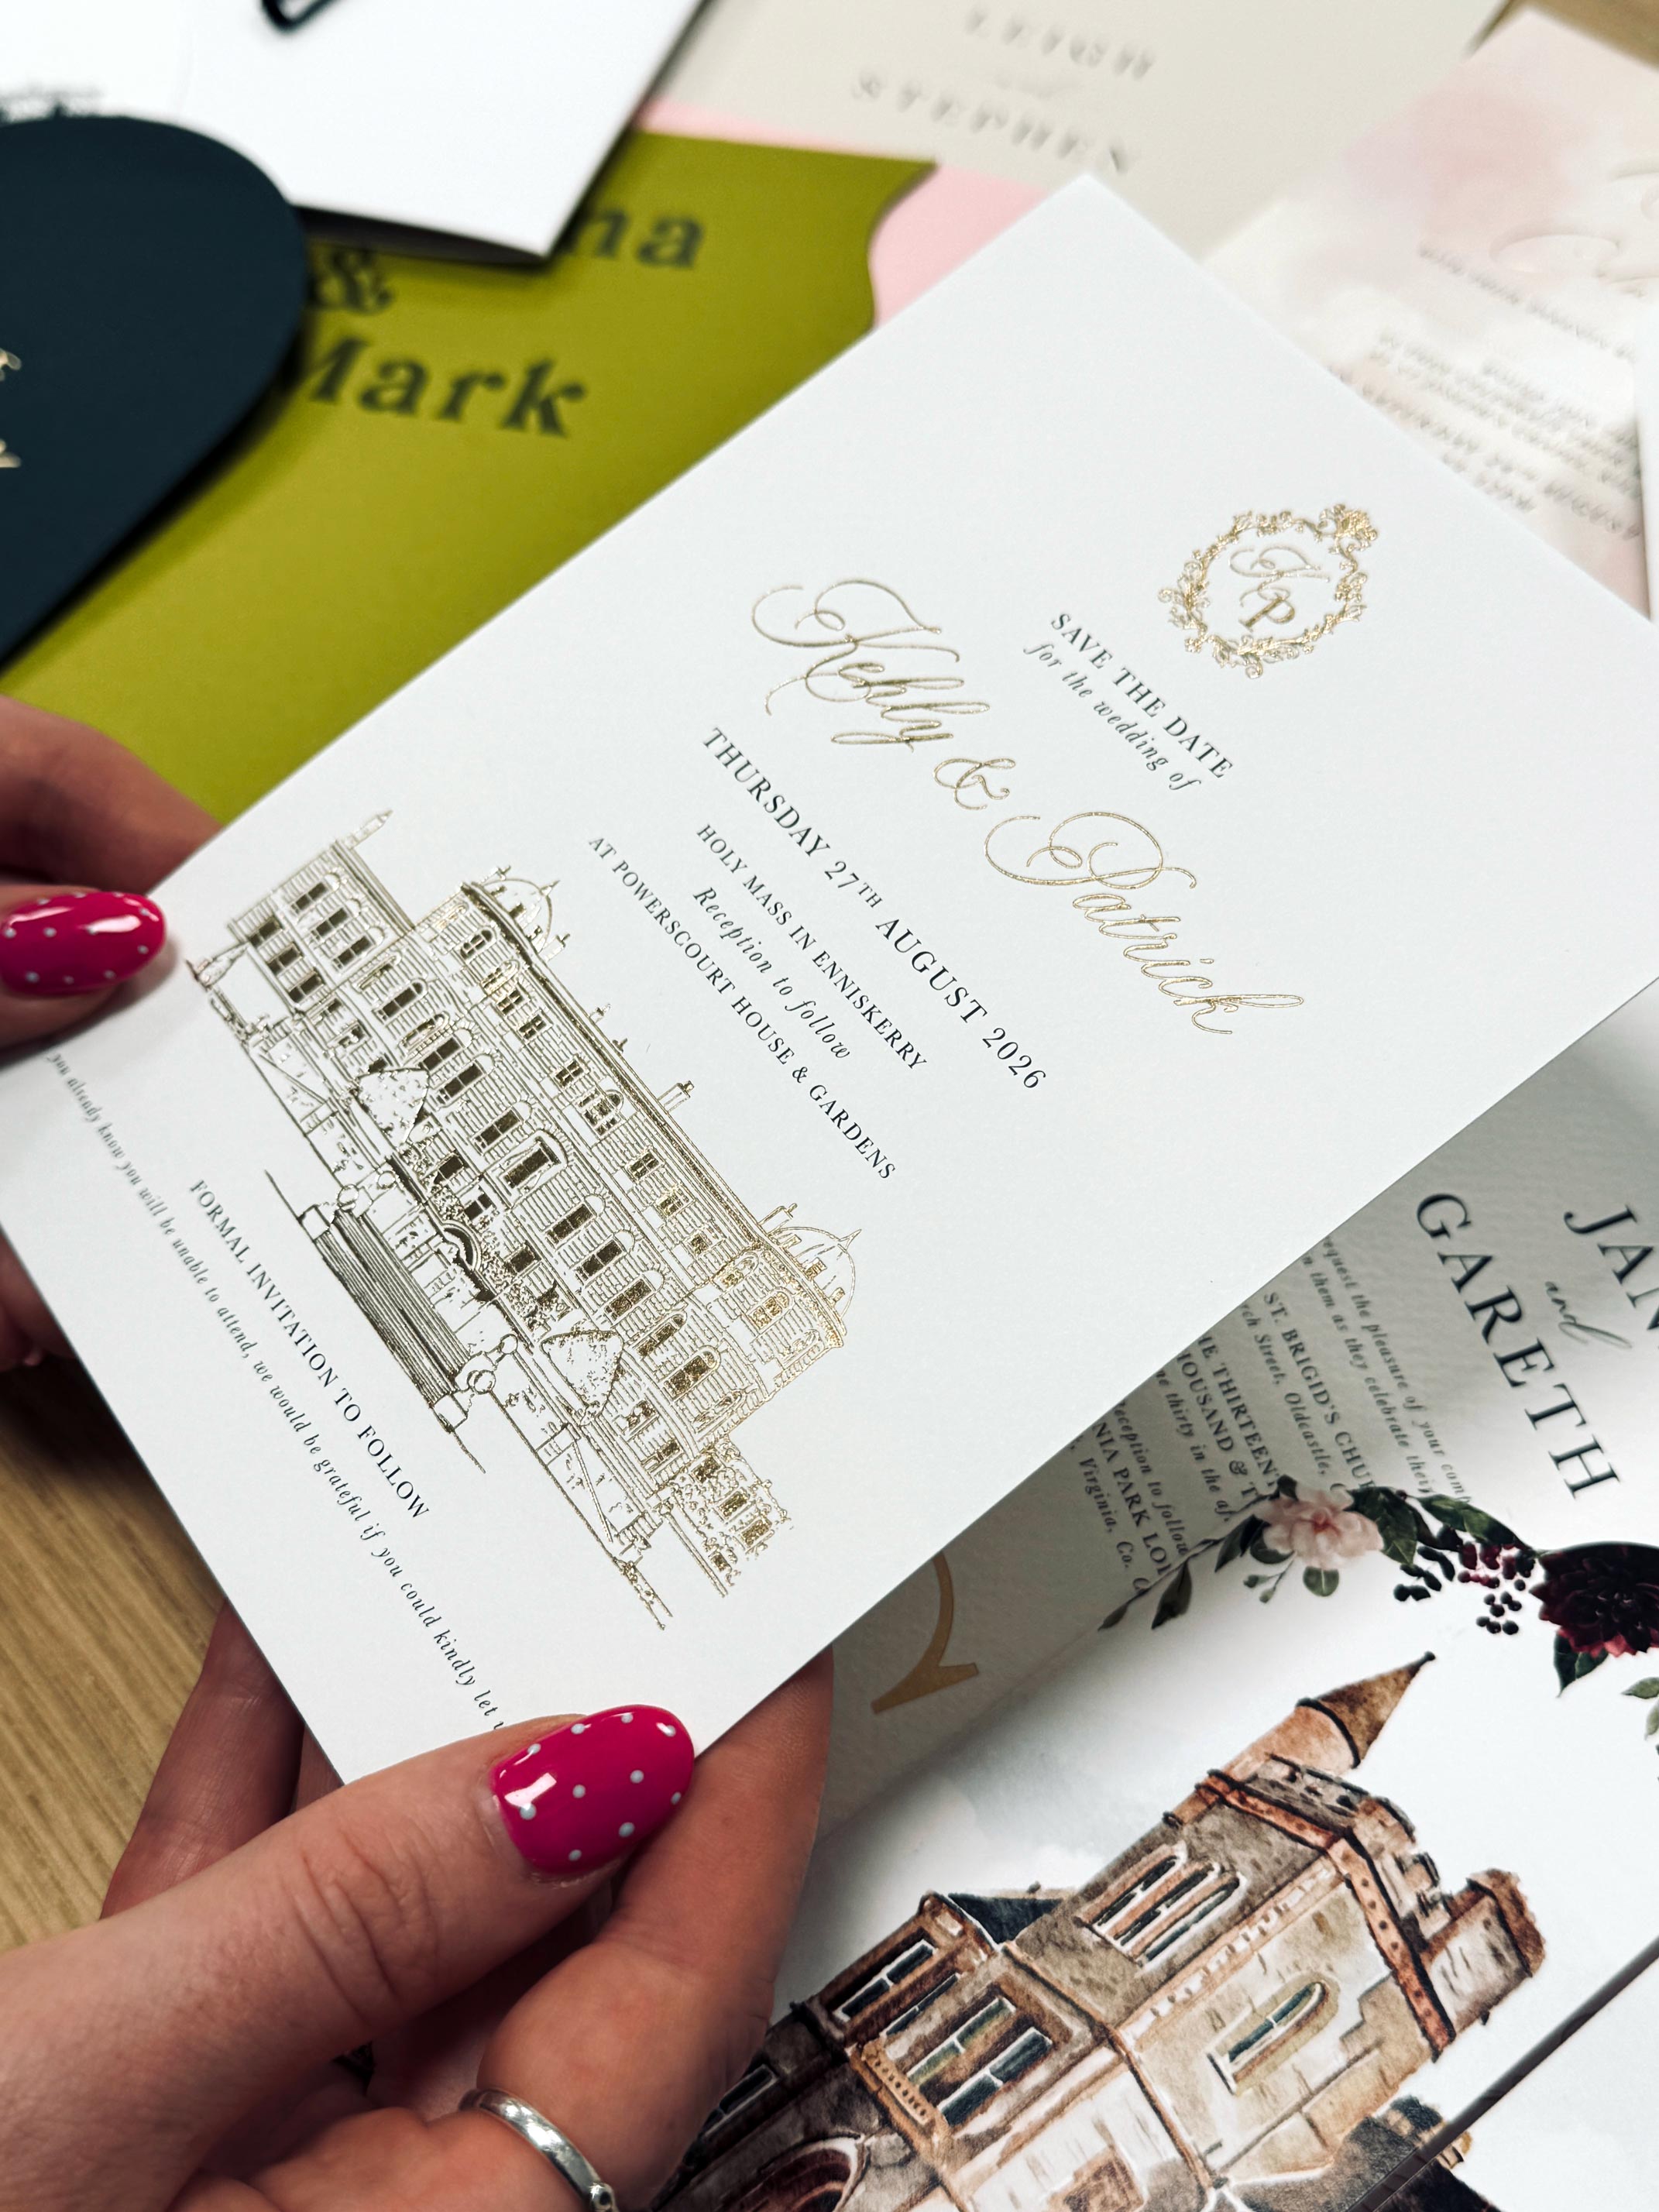 LEIGH
STEPHEN
na
&
Mark
KP
SAVE THE DATE
for the wedding of
Kelly & Patrick
THURSDAY 27TH AUGUST 2026
HOLY MASS IN ENNISKERRY
Reception to follow
AT POWERSCOURT HOUSE & GARDENS
FORMAL INVITATION TO FOLLOW
you already know you will be unable to attend, we would be grateful if you could kindly let
JAN
and
GARETH
request the pleasure of your
them as they celebrate their
ST. BRIGID'S CHU
Street, Oldcastle,
THIRTEEN
OUSAND &
thirty in the
Reception to follow
NIA PARK LO
Virginia, Co.